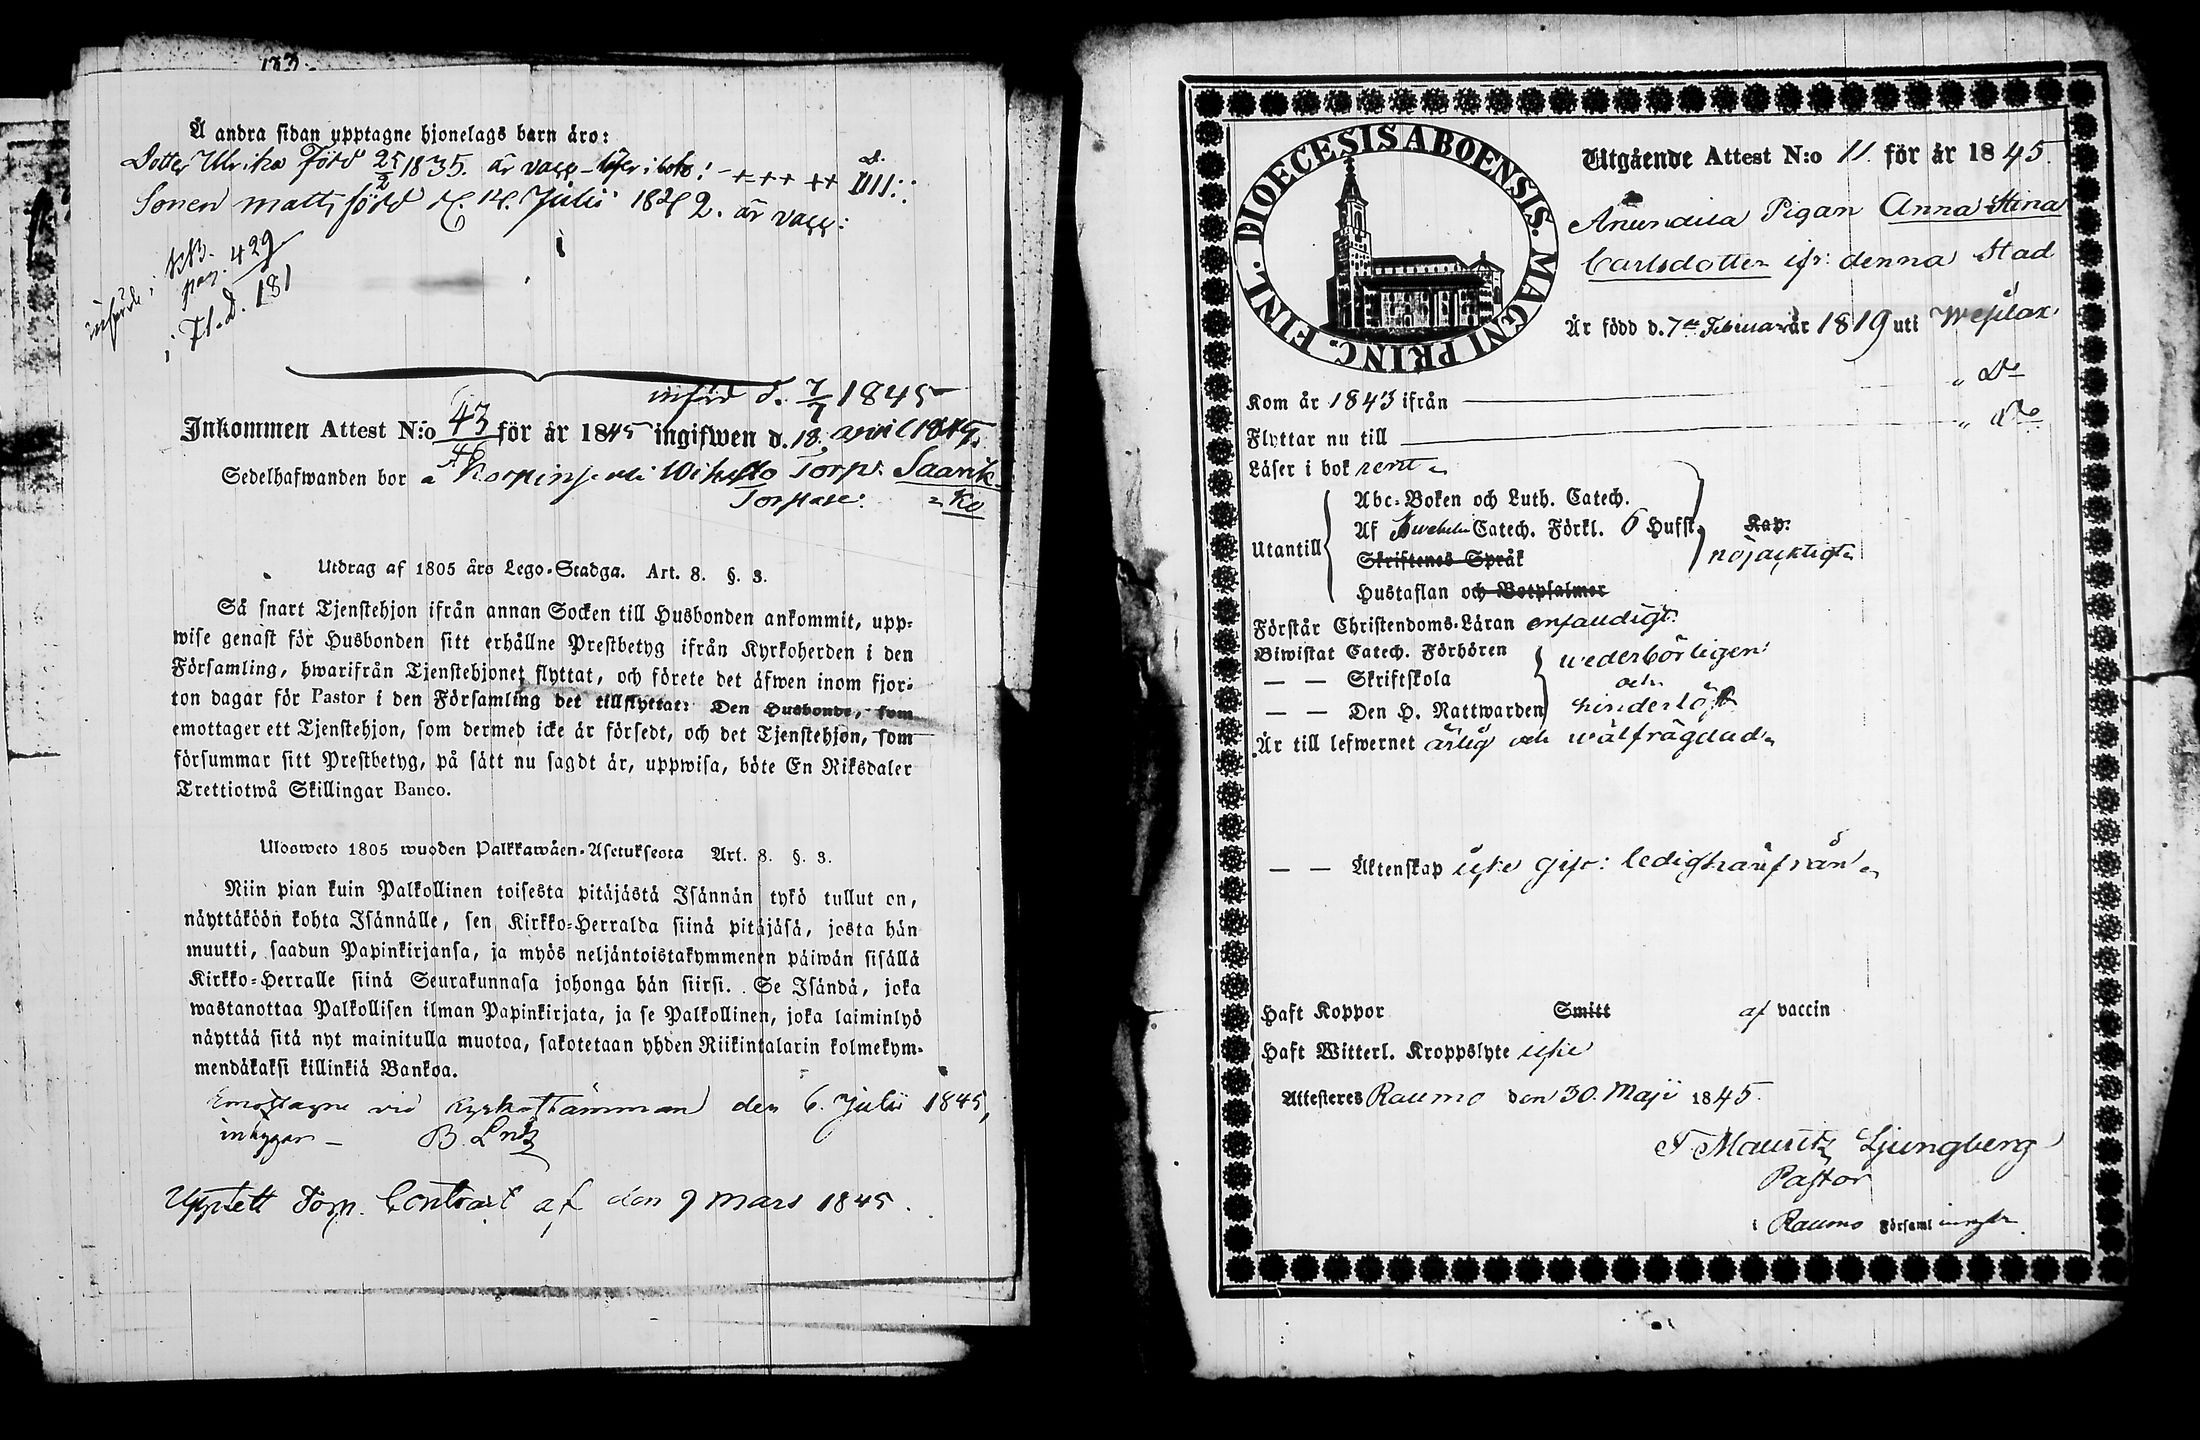 Å andra sidan upptagne hjonelags barn äro:
Dotter Ulrika Född 25/2 1835. är vacc
Sonen Matts född d. 14. Julii 1842. är vacc:
införde i KB.
pag. 429
i Fl.d. 181
införd d. 7/7 1845
Inkommen Attest N:o 43 för år 1845 ingifwen d. 18. april 1845.
Sedelhafwanden bor Torp. Saarik=
=ko
Utdrag af 1805 års Lego-Stadga. Art. 8. §. 3.
Så snart Tjenstehjon ifrån annan Socken till Husbonden ankommit, upp=
wise genast för Husbonden sitt erhållne Prestbetyg ifrån Kyrkoherden i den
Församling, hwarifrån Tjenstehjonet flyttat, och förete det äfwen inom fjor=
ton dagar för Pastor i den Församling det tillflyttat: Den Husbonde, som
emottager ett Tjenstehjon, som dermed icke är försedt, och det Tjenstehjon, som
försummar sitt Prestbetyg, på sätt nu sagdt är, uppwisa, böte En Riksdaler
Trettiotwå Skillingar Banco.
Ulosweto 1805 wuoden Palkkawäen-Asetuksesta Art. 8. §. 3.
Niin pian kuin Palkollinen toisesta pitäjästä Isännän tykö tullut on,
näyttäköön kohta Isännälle, sen Kirkko=Herralda siinä pitäjäsä, josta hän
muutti, saadun Papinkirjansa, ja myös neljäntoistakymmenen päiwän sisällä
Kirkko=Herralle siinä Seurakunnasa johonga hän siirsi. Se Isändä, joka
wastanottaa Palkollisen ilman Papinkirjata, ja se Palkollinen, joka laiminlyö
näyttää sitä nyt mainitulla muotoa, sakotetaan yhden Riikintalarin kolmekym=
mendäkaksi killinkiä Bankoa.
Emottagne vid Kyrkostämman den 6. Julii 1845,
intygar B. Lndz
Upstett Torp. Contract af den 9 Mars 1845.
DIOECESIS ABOENSIS. MAGNI PRINC. FINL.
Utgående Attest N:o 11. för år 1845.
Pigan Anna Stina
Carlsdotter ifr: denna Stad
Är född d. 7de Februari år 1819 uti Wesilax
Kom år 1843 ifrån " Do
Flyttar nu till " Do
Läser i bok rent
Utantill
Abc=Boken och Luth. Catech.
Af Swebelii Catech. Förkl. 6 Hufst.
Skriftenes Språk
Hustaflan och Botpsalmer
Kap:
nöjagtigt
Förstår Christendoms-Läran enfaldigt
Biwistat Catech. Förhören
— — Skriftskola
— — Den H. Nattwarden
wederbörligen
och
hinderlöst
Är till lefwernet ärlig och wälfrägdad
— — Äktenskap icke gift: ledig härifrån
Haft Koppor Smitt af vaccin
Haft Witterl. Kroppslyte icke
Attesteres Raumo den 30. Maji 1845.
F. Mauritz Ljungberg
Pastor
i Raumo Församl